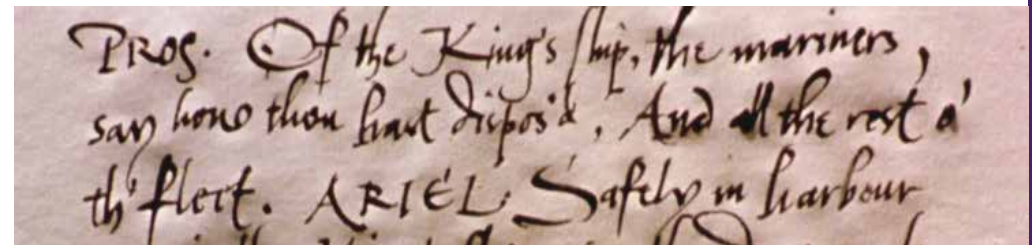 PROS. Of the King's ship, the mariners,
say how thou hast dispos'd, And all the rest o'
th' fleet. ARIEL Safely in harbour